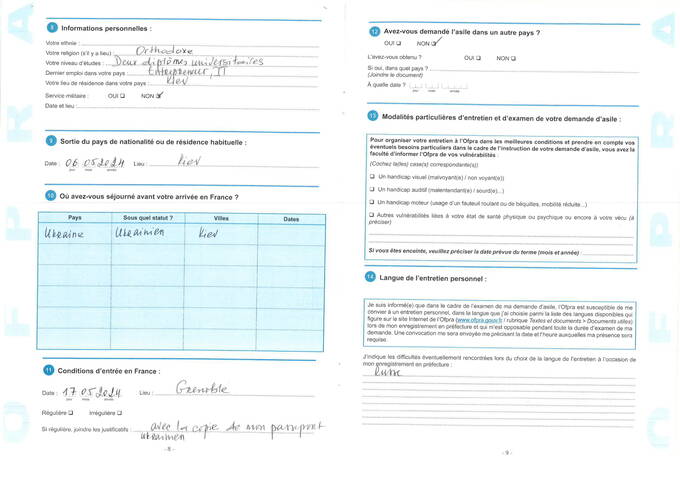 OFPRA
8 Informations personnelles :
Votre ethnie :
Votre religion (s'il y a lieu) : Orthodoxe
Votre niveau d'études : Deux diplômes universitaires
Dernier emploi dans votre pays : Entrepreneur, IT
Votre lieu de résidence dans votre pays : Kiev
Service militaire : OUI ☐ NON ☑
Date et lieu :
9 Sortie du pays de nationalité ou de résidence habituelle :
Date : 06 05 2024 Lieu : Kiev
jour mois année
10 Où avez-vous séjourné avant votre arrivée en France ?
Pays Sous quel statut ? Villes Dates
Ukraine Ukrainien Kiev
11 Conditions d'entrée en France :
Date : 17 05 2024 Lieu : Grenoble
jour mois année
Régulière ☐ Irrégulière ☐
Si régulière, joindre les justificatifs : avec la copie de mon passport
Ukrainien
- 8 -
12 Avez-vous demandé l'asile dans un autre pays ?
OUI ☐ NON ☑
L'avez-vous obtenu ? OUI ☐ NON ☐
Si oui, dans quel pays ?
(Joindre le document)
À quelle date ?
jour mois année
13 Modalités particulières d'entretien et d'examen de votre demande d'asile :
Pour organiser votre entretien à l'Ofpra dans les meilleures conditions et prendre en compte vos
éventuels besoins particuliers dans le cadre de l'instruction de votre demande d'asile, vous avez la
faculté d'informer l'Ofpra de vos vulnérabilités :
(Cochez la(les) case(s) correspondante(s))
☐ Un handicap visuel (malvoyant(e) / non voyant(e))
☐ Un handicap auditif (malentendant(e) / sourd(e)...)
☐ Un handicap moteur (usage d'un fauteuil roulant ou de béquilles, mobilité réduite...)
☐ Autres vulnérabilités liées à votre état de santé physique ou psychique ou encore à votre vécu (à
préciser)
Si vous êtes enceinte, veuillez préciser la date prévue du terme (mois et année) :
14 Langue de l'entretien personnel :
Je suis informé(e) que dans le cadre de l'examen de ma demande d'asile, l'Ofpra est susceptible de me
convier à un entretien personnel, dans la langue que j'ai choisie parmi la liste des langues disponibles qui
figure sur le site Internet de l'Ofpra (www.ofpra.gouv.fr / rubrique Textes et documents > Documents utiles)
lors de mon enregistrement en préfecture et qui m'est opposable pendant toute la durée d'examen de ma
demande. Une convocation me sera envoyée me précisant la date et l'heure auxquelles ma présence sera
requise.
J'indique les difficultés éventuellement rencontrées lors du choix de la langue de l'entretien à l'occasion de
mon enregistrement en préfecture :
Russe
- 9 -